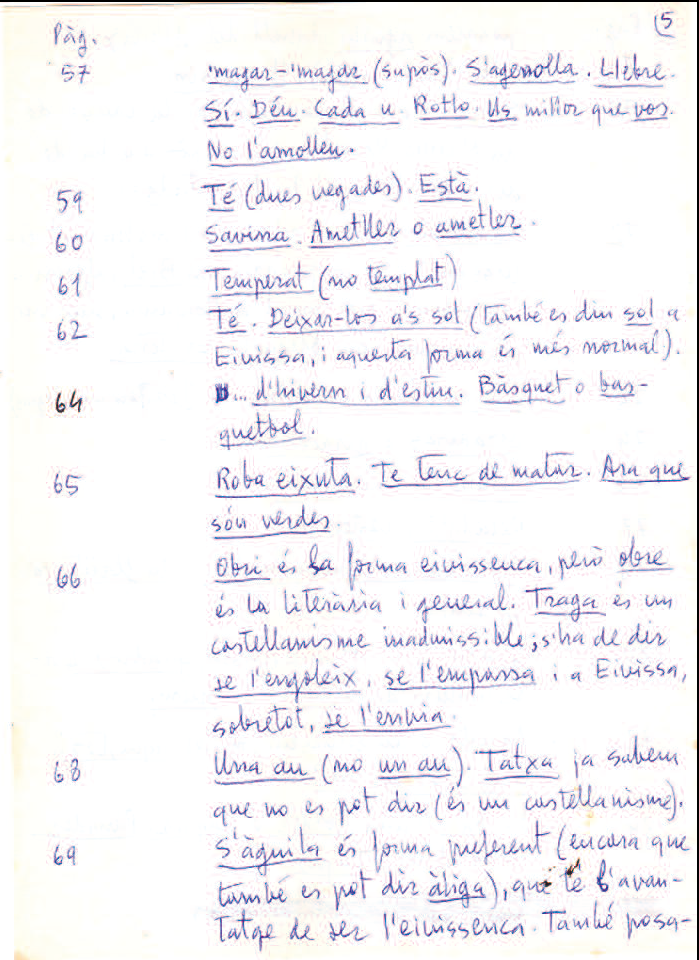 (5
Pàg.
57 'magar-'magar (supòs). S'agenolla. Llebre.
Sí. Déu. Cada u. Rotlo. Us millor que vos.
No l'amolleu.
59 Té (dues vegades). Està.
60 Savina. Ametller o ametler.
61 Temperat (no templat)
62 Té. Deixar-los a's sol (també es diu sol a
Eivissa, i aquesta forma és més normal).
64 ... d'hivern i d'estiu. Bàsquet o bas-
quetbol.
65 Roba eixuta. Te tenc de matar. Ara que
són verdes.
66 Obri és la forma eivissenca, però obre
és la literària i general. Traga és un
castellanisme inadmissible; s'ha de dir
se l'engoleix, se l'empassa i a Eivissa,
sobretot, se l'envia.
68 Una au (no un au). Tatxa ja sabem
que no es pot dir (és un castellanisme).
69 S'àguila és forma preferent (encara que
també es pot dir àliga), que té l'avan-
tatge de ser l'eivissenca. També posa-